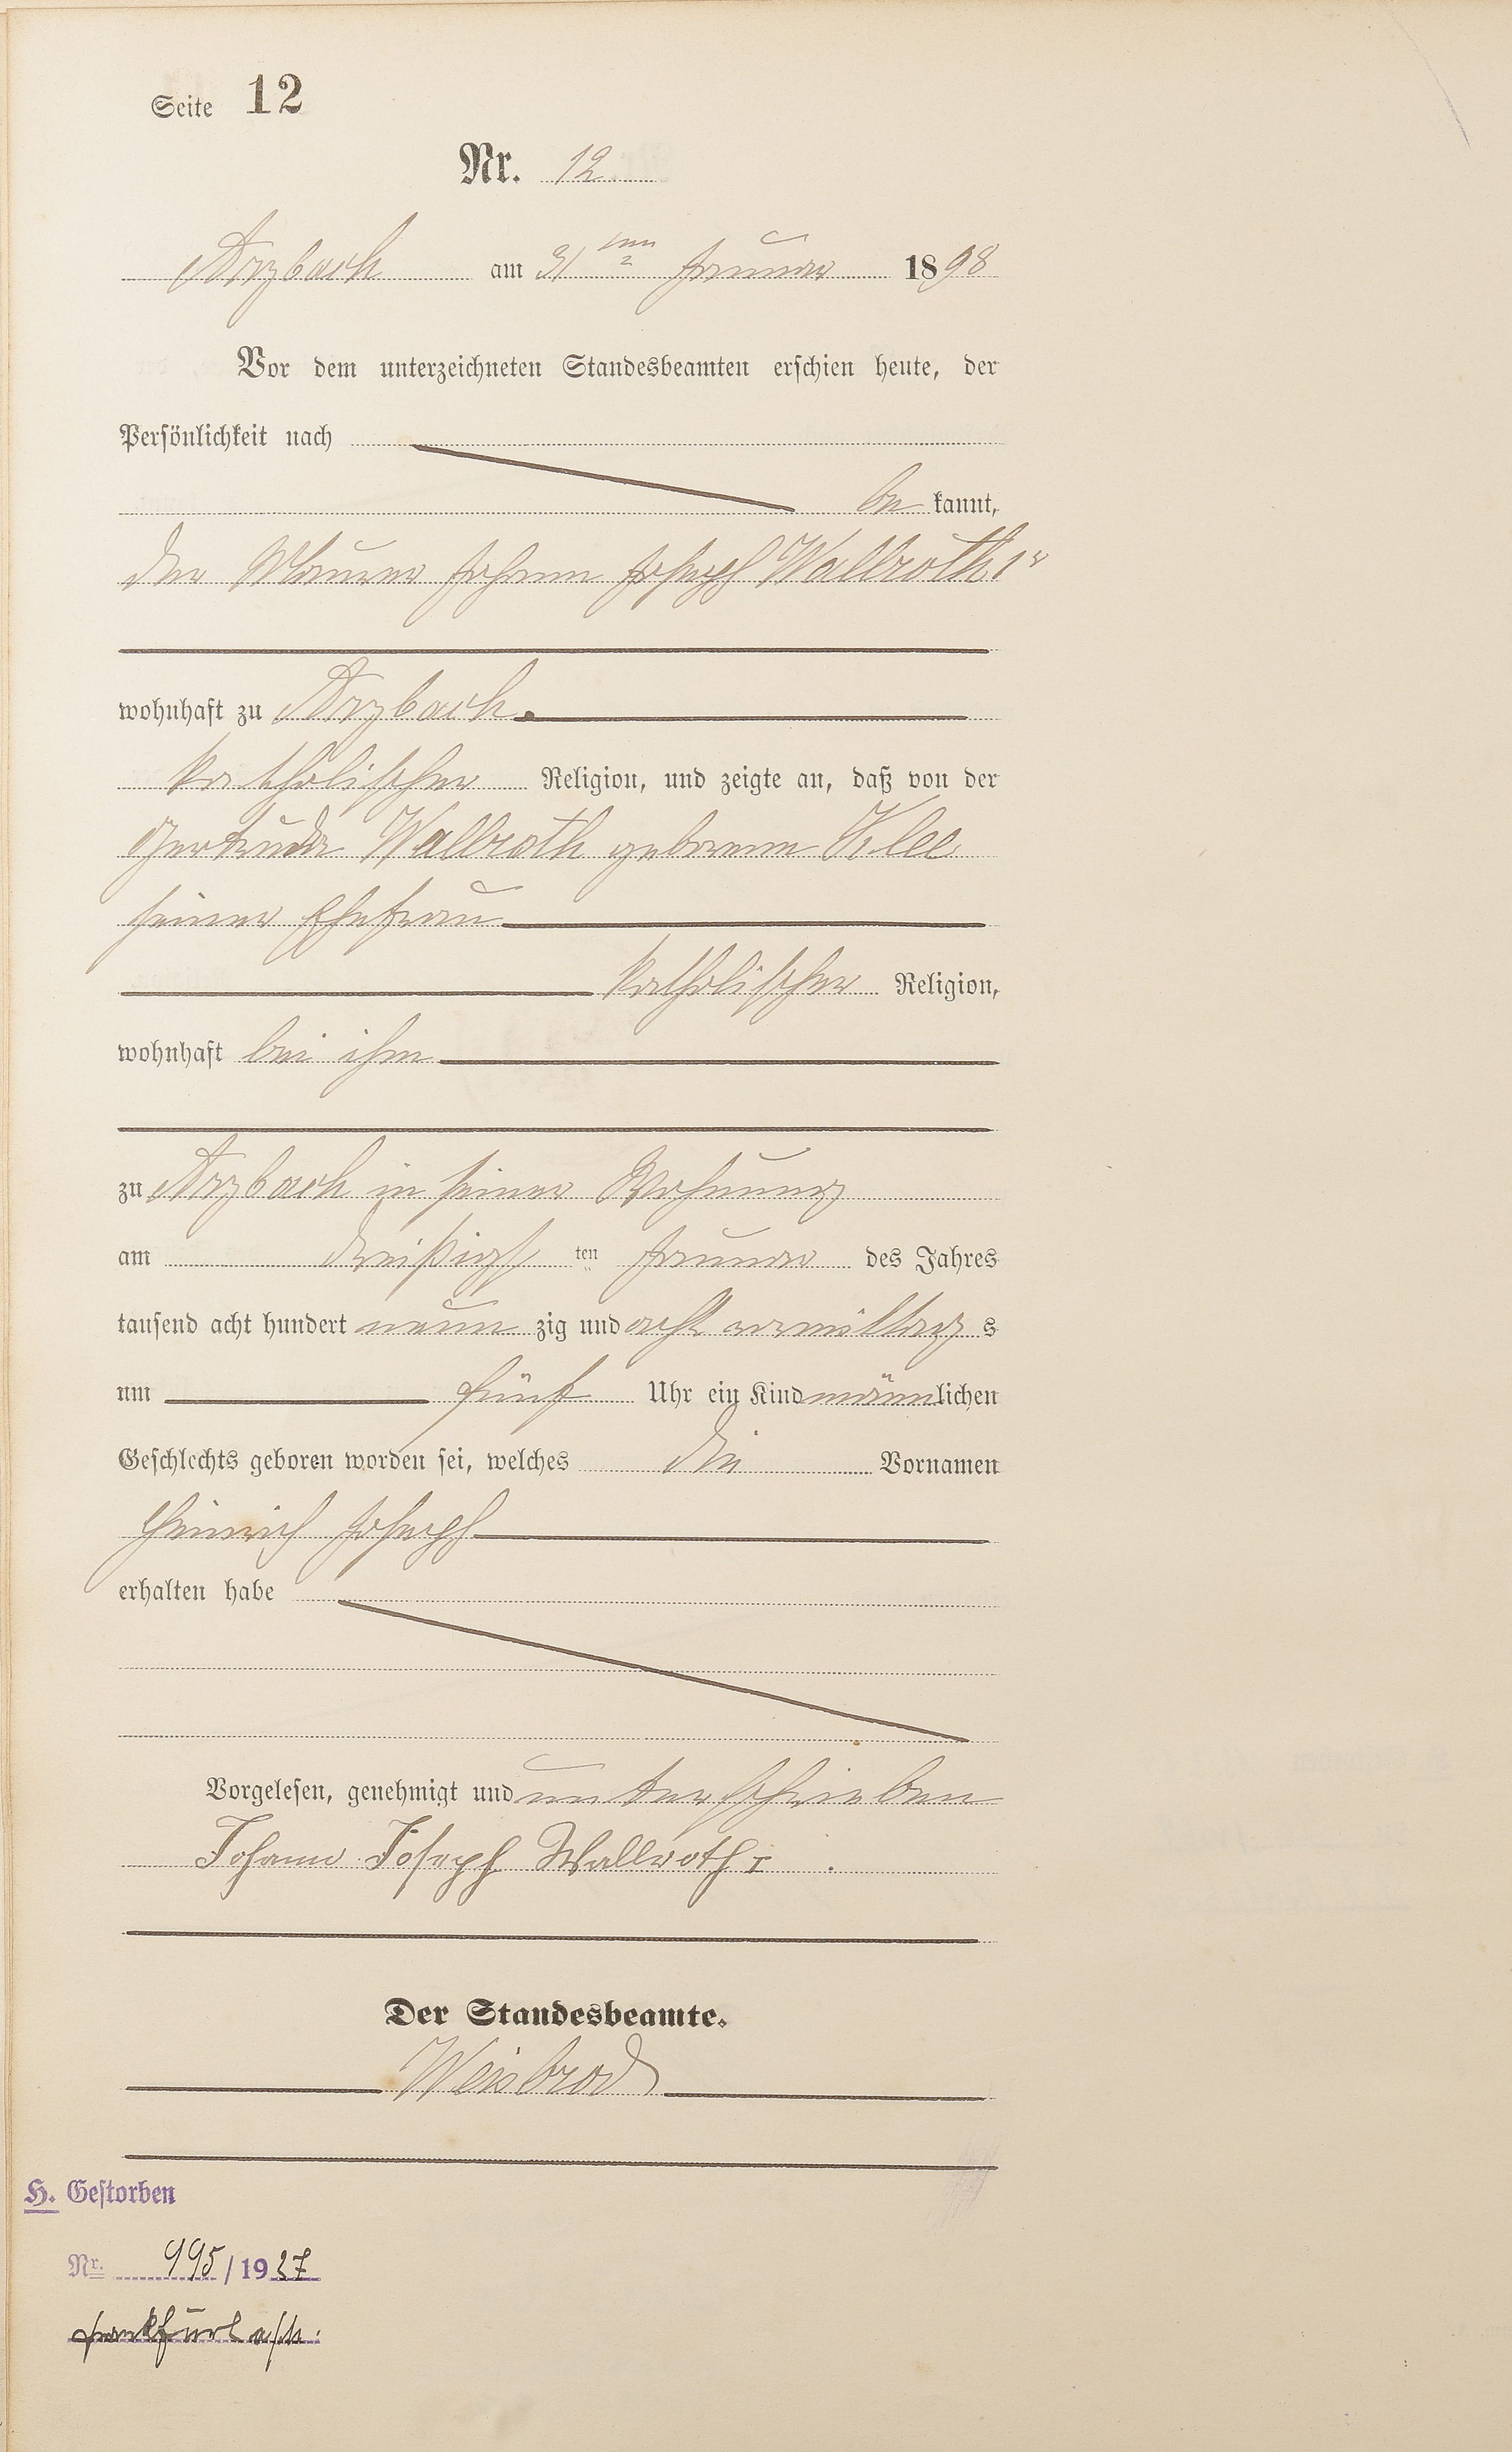 Seite 12
Nr. 12
Arzbach am 31ten Januar 1898
Vor dem unterzeichneten Standesbeamten erschien heute, der
Persönlichkeit nach
be kannt,
der Maurer Johann Joseph Wallroth 1r
wohnhaft zu Arzbach.
katholischer Religion, und zeigte an, daß von der
Gertruda Wallroth geborene Klee
seiner Ehefrau
katholischer Religion,
wohnhaft bei ihm
zu Arzbach in seiner Wohnung
am dreißigs ten Januar des Jahres
tausend acht hundert neun zig und acht vormittag s
um fünf Uhr ein Kind männlichen
Geschlechts geboren worden sei, welches die Vornamen
Heinrich Joseph
erhalten habe
Vorgelesen, genehmigt und unterschrieben
Johann Joseph Wallroth I.
Der Standesbeamte.
Weisbrod
H. Gestorben
Nr. 995/1937
Frankfurt a/M.